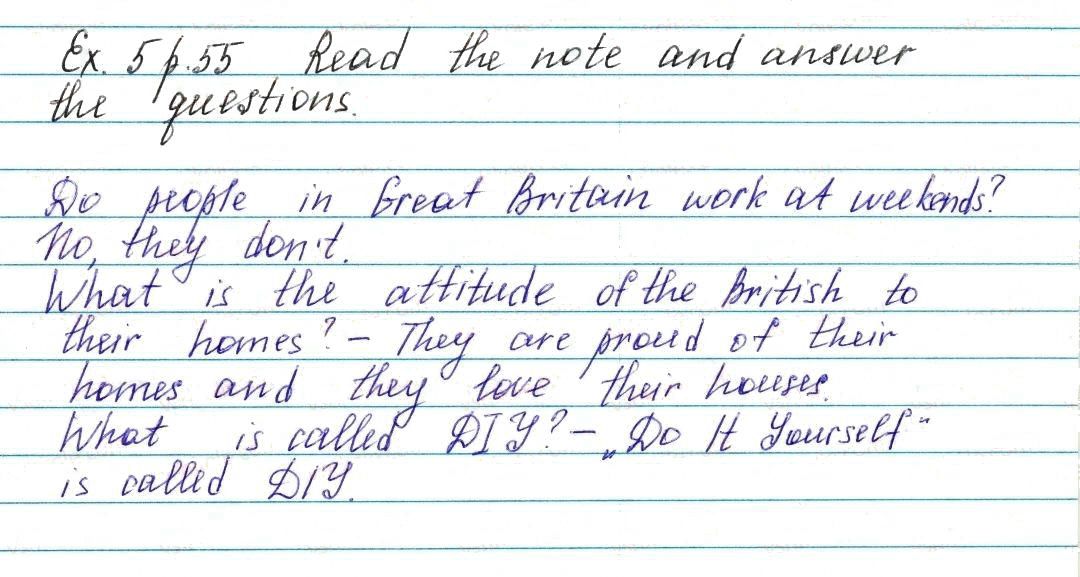 Ex. 5 p. 55 Read the note and answer
the questions.
Do people in Great Britain work at weekends?
No, they don't.
What is the attitude of the British to
their homes? – They are proud of their
homes and they love their houses.
What is called DIY? – „Do It Yourself“
is called DIY.